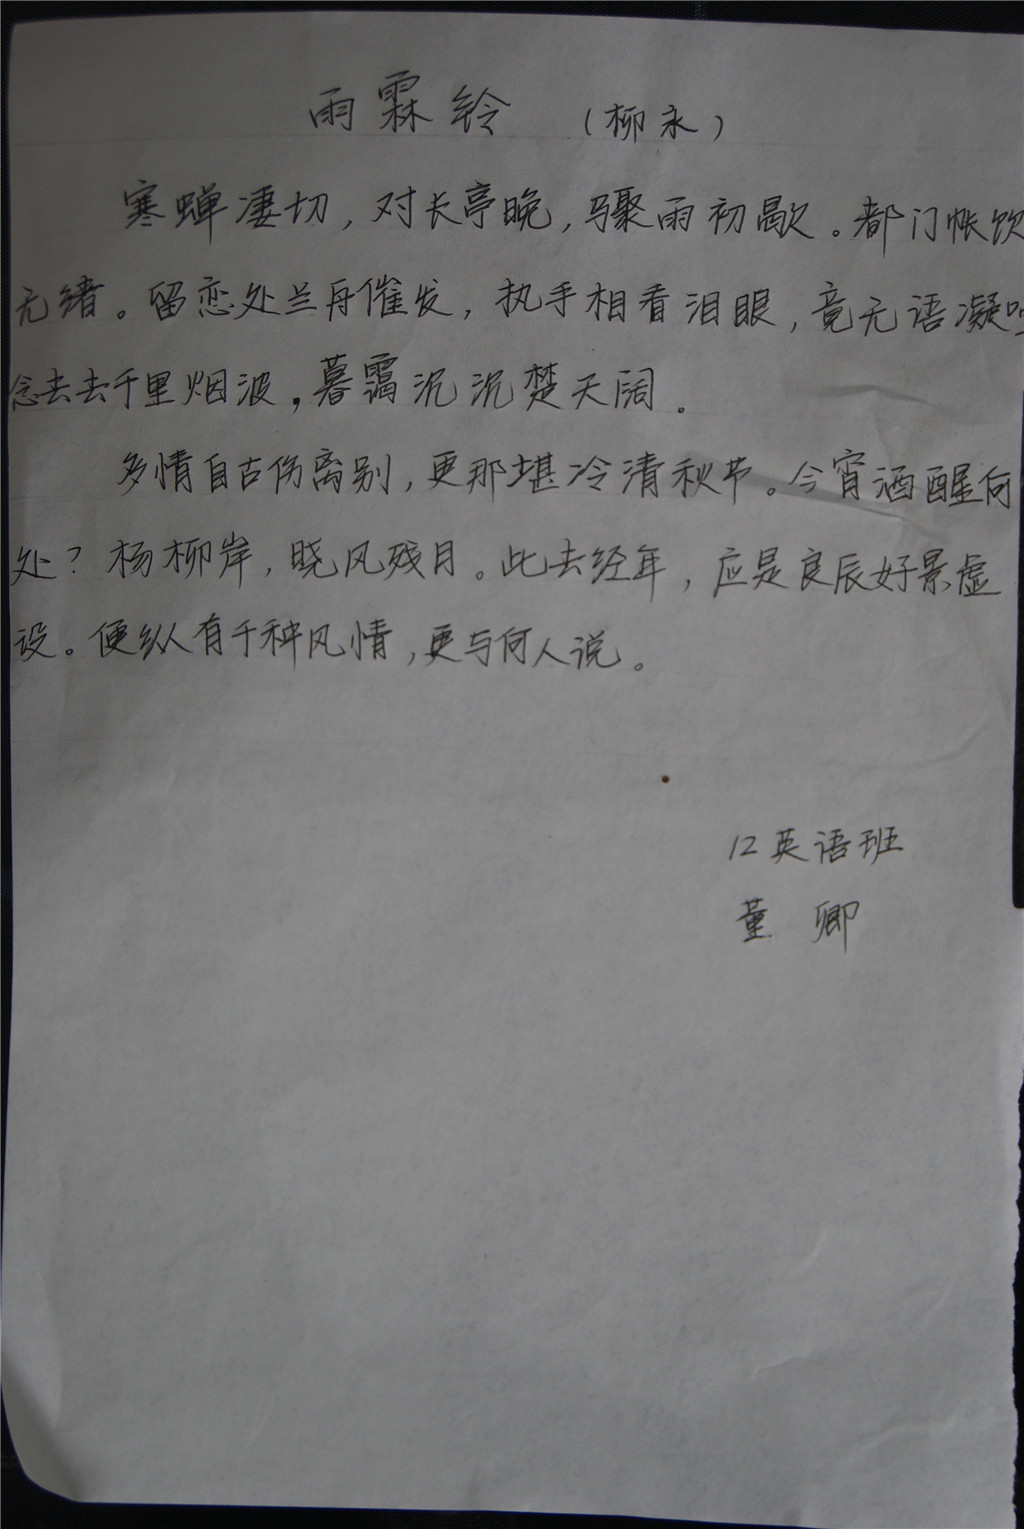 雨霖铃 （柳永）
寒蝉凄切，对长亭晚，骤雨初歇。都门帐饮
无绪。留恋处兰舟催发，执手相看泪眼，竟无语凝噎
念去去千里烟波，暮霭沉沉楚天阔。
多情自古伤离别，更那堪冷清秋节。今宵酒醒何
处？杨柳岸，晓风残月。此去经年，应是良辰好景虚
设。便纵有千种风情，更与何人说。
12英语班
董 卿